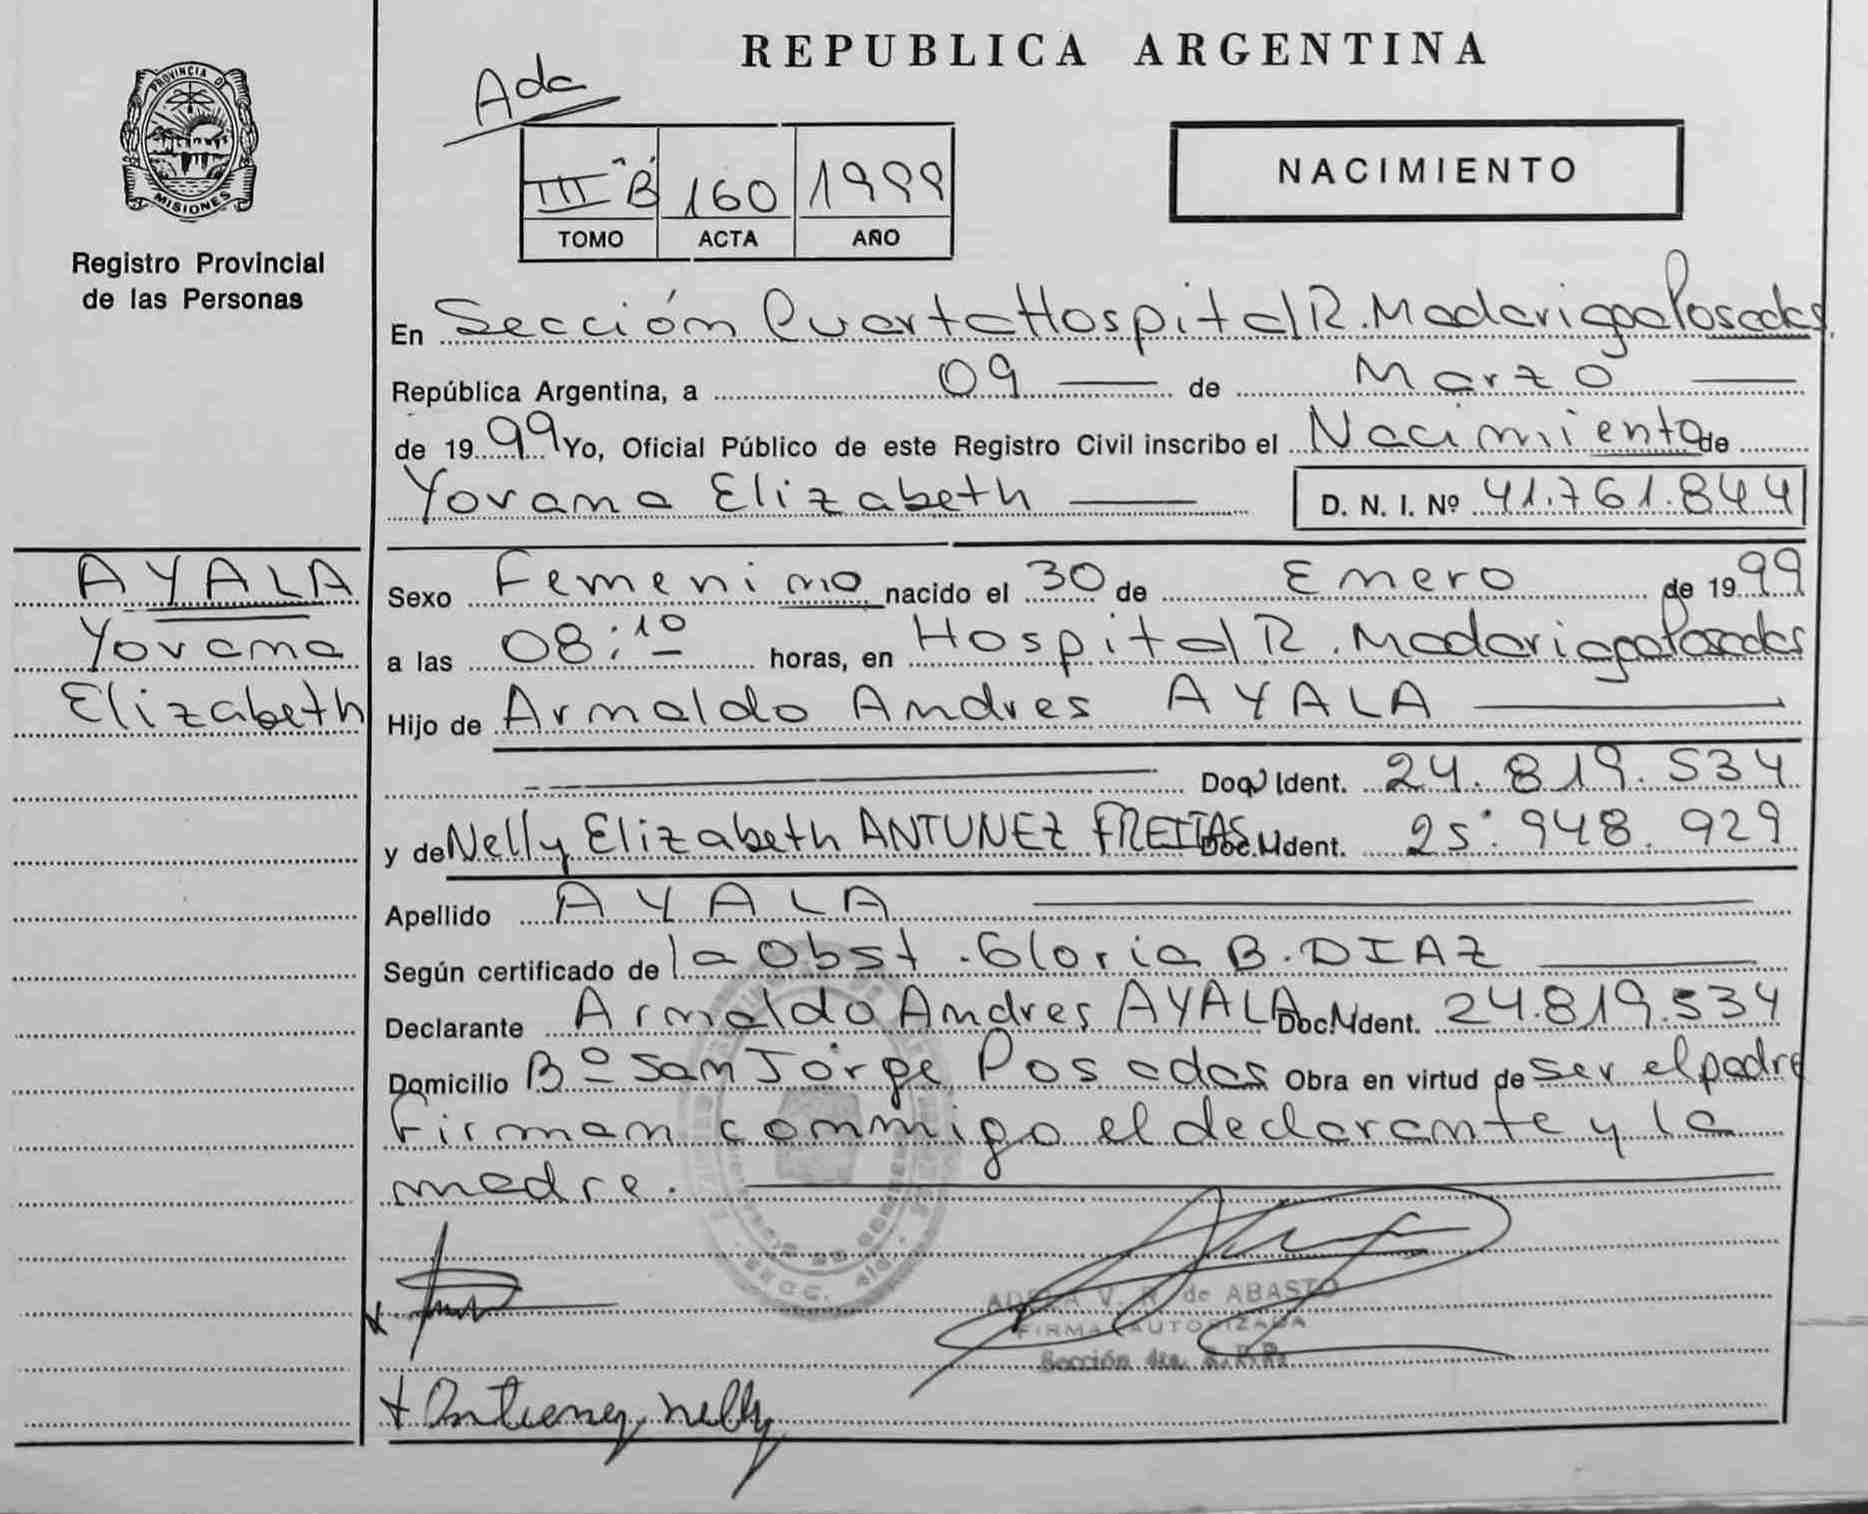 REPUBLICA ARGENTINA
Ada
PROVINCIA DE
MISIONES
Registro Provincial
de las Personas
III "B" 160 1999
TOMO ACTA AÑO
NACIMIENTO
En Sección Cuarta Hospital R. Madariaga Posadas
República Argentina, a 09 de Marzo
de 1999 Yo, Oficial Público de este Registro Civil inscribo el Nacimiento de
Yovana Elizabeth D. N. I. Nº 41.761.844
AYALA
Yovana
Elizabeth
Sexo Femenino nacido el 30 de Enero de 1999
a las 08:10 horas, en Hospital R. Madariaga Posadas
Hijo de Arnaldo Andres AYALA
Doc. Ident. 24.819.534
y de Nelly Elizabeth ANTUNEZ FREITAS Doc. Ident. 25.948.929
Apellido AYALA
Según certificado de la Obst. Gloria B. DIAZ
Declarante Arnaldo Andres AYALA Doc. Ident. 24.819.534
Domicilio Bº San Jorge Posadas Obra en virtud de ser el padre
Firman conmigo el declarante y la
madre.
V. de ABASTO
FIRMA AUTORIZADA
Sección 4ta. R.P.P.
Antunez Nelly